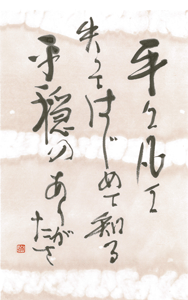 平々凡々
失ってはじめて知る
平穏のありがたさ